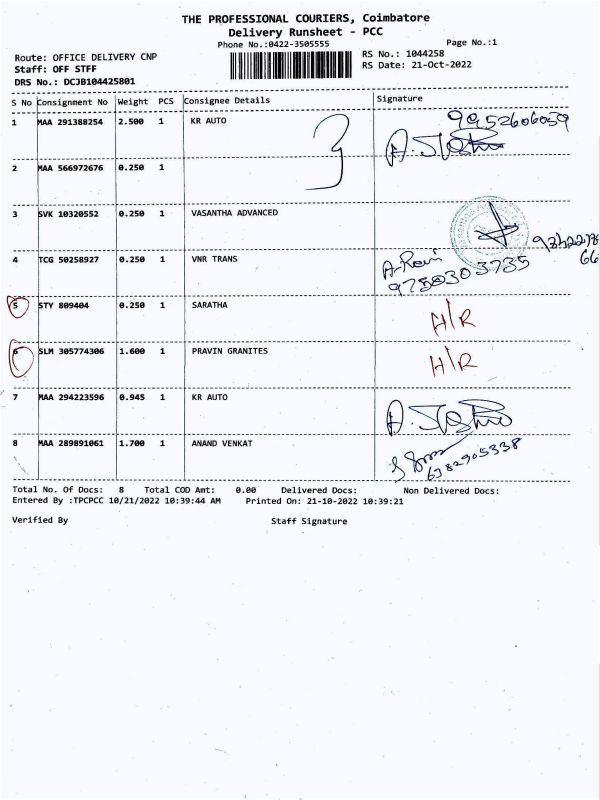 THE PROFESSIONAL COURIERS, Coimbatore
Delivery Runsheet - PCC
Phone No.:0422-3505555
Page No.:1
Route: OFFICE DELIVERY CNP
RS No.: 1044258
Staff: OFF STFF
RS Date: 21-Oct-2022
DRS No.: DCJB104425801
S No Consignment No Weight PCS Consignee Details Signature
1 MAA 291388254 2.500 1 KR AUTO 9952606059
2 MAA 566972676 0.250 1
3 SVK 10320552 0.250 1 VASANTHA ADVANCED
4 TCG 50258927 0.250 1 VNR TRANS A. Ravi
9750303735
5 STY 809404 0.250 1 SARATHA H/R
6 SLM 305774306 1.600 1 PRAVIN GRANITES H/R
7 MAA 294223596 0.945 1 KR AUTO
8 MAA 289891061 1.700 1 ANAND VENKAT
6382905338
Total No. Of Docs: 8 Total COD Amt: 0.00 Delivered Docs: Non Delivered Docs:
Entered By :TPCPCC 10/21/2022 10:39:44 AM Printed On: 21-10-2022 10:39:21
Verified By Staff Signature